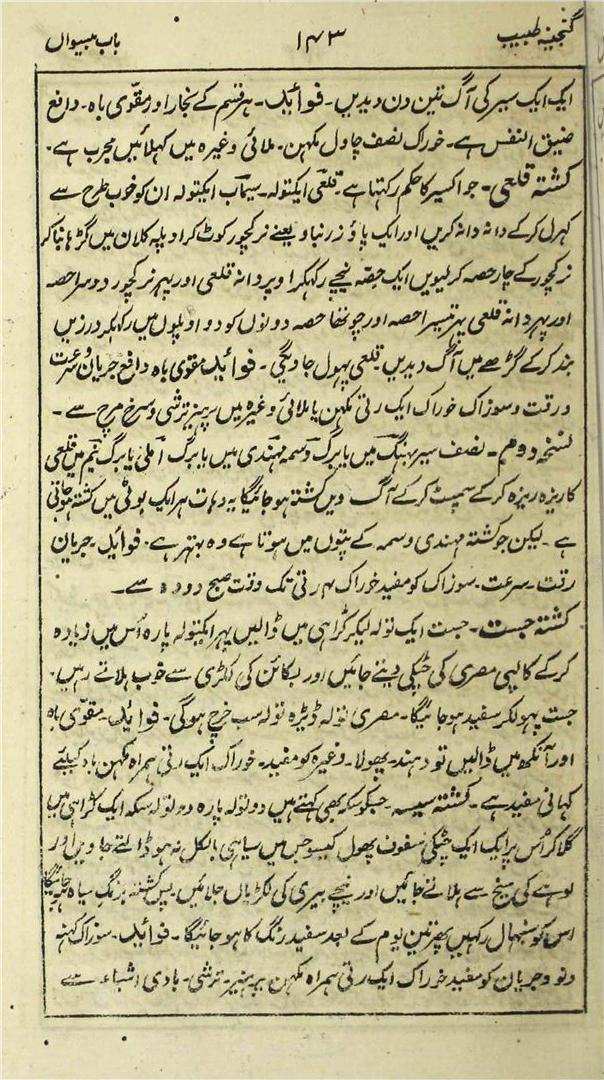 گنجینہ طبیب ۱۴۳ باب بیسواں
ایک ایک سیر کی آگ تین دن دیدیں۔ فوائد۔ ہر قسم کے بخار اور مقوی باہ۔ دافع
ضیق النفس ہے۔ خوراک نصف چاول مکہن۔ ملائی وغیرہ میں کہلائیں مجرب ہے۔
کشتہ قلعی۔ جو اکسیر کا حکم رکہتا ہے۔ قلعی ایکتولہ۔ سیماب ایکتولہ ان کو خوب طرح سے
کہرل کرکے دانہ دانہ کریں اور ایک پاؤ زرنباد یعنے نرکچور کوٹ کر اوپلہ کلاں میں گڑہا بنا کر
نرکچور کے چار حصہ کر لیویں ایک حصہ نیچے رکہکر اوپر دانہ قلعی اور پہر نرکچور دوسرا حصہ
اور پہر دانہ قلعی پہر تیسرا حصہ اور چوتھا حصہ دونوں کو دو اوپلوں میں رکہکر درزیں
بند کرکے گڑھے میں آگ دیدیں۔ قلعی پہول جاویگی۔ فوائد مقوی باہ دافع جریان و سرعت
و رقت و سوزاک خوراک ایک رتی مکہن یا ملائی وغیرہ میں پرہیز ترشی و سرخ مرچ سے۔
نسخہ دوم۔ نصف سیر بہنگ میں یا برگ وسمہ مہندی میں یا برگ املی یا برگ نیم میں قلعی
کا ریزہ ریزہ کرکے سمپٹ کرکے آگ دیں کشتہ ہو جائیگا یہ دہات ہر ایک بوٹی میں کشتہ ہو جاتی
ہے۔ لیکن جو کشتہ مہندی وسمہ کے پتوں میں ہوتا ہے وہ بہتر ہے۔ فوائد۔ جریان
رقت۔ سرعت۔ سوزاک کو مفید خوراک ۴ رتی تک وقت صبح دودہ سے۔
کشتہ جست۔ جست ایک تولہ لیکر کڑاہی میں ڈالیں پہر ایکتولہ پارہ اس میں زیادہ
کرکے کالپی مصری کی چٹکی دیتے جائیں اور بکائن کی لکڑی سے خوب ہلاتے رہیں۔
جست پہولکر سفید ہو جائیگا۔ مصری تولہ ڈیڑہ تولہ سب خرچ ہوگی۔ فوائد۔ مقوی باہ
اور آنکھ میں ڈالیں تو دہند۔ پھولا۔ وغیرہ کو مفید۔ خوراک ایک رتی ہمراہ مکہن باہ کیلئے
کہانی مفید ہے۔ کشتہ سیسہ۔ جسکو سکہ بھی کہتے ہیں دو تولہ پارہ دو تولہ سکہ ایک کڑاہی میں
گلا کر اس پر ایک ایک چٹکی سفوف پھول کیسو جس میں سیاہی بالکل نہ ہو ڈالتے جاویں اور
لوہے کی سیخ سے ہلاتے جائیں اور نیچے بیری کی لکڑیاں جلائیں۔ پس کشتہ برنگ سیاہ ہو جائیگا
اس کو سنبہال رکہیں پھر تین یوم کے بعد سفید رنگ کا ہو جائیگا۔ فوائد۔ سوزاک کہنہ
و نو و جریان کو مفید خوراک ایک رتی ہمراہ مکہن پرہیز۔ ترشی۔ بادی اشیاء سے